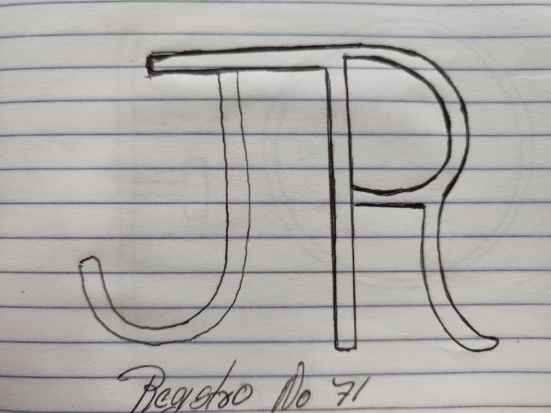 JR
Registro No 71